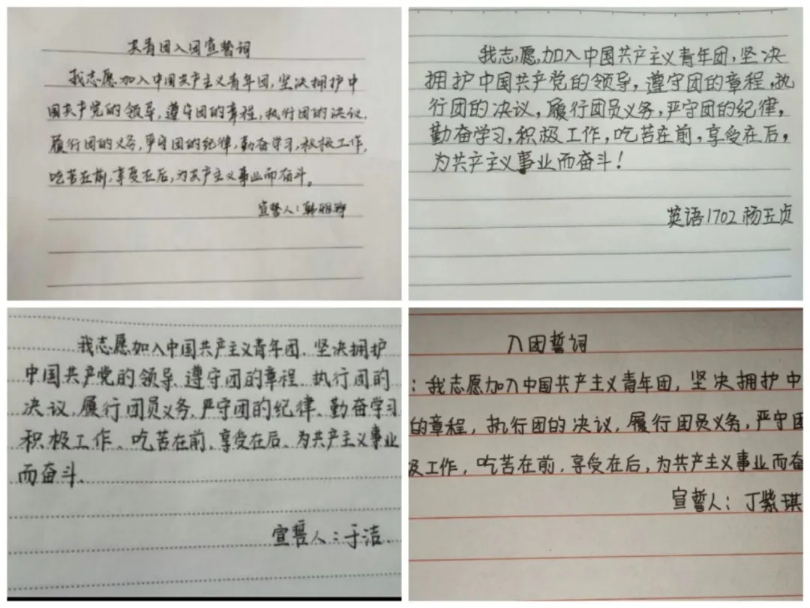 共青团入团宣誓词
我志愿加入中国共产主义青年团，坚决拥护中
国共产党的领导，遵守团的章程，执行团的决议，
履行团的义务，严守团的纪律，勤奋学习，积极工作，
吃苦在前，享受在后，为共产主义事业而奋斗。
宣誓人：韩
我志愿加入中国共产主义青年团，坚决
拥护中国共产党的领导，遵守团的章程，执
行团的决议，履行团员义务，严守团的纪律，
勤奋学习，积极工作，吃苦在前，享受在后，
为共产主义事业而奋斗！
英语1702 杨五贞
我志愿加入中国共产主义青年团，坚决拥护
中国共产党的领导，遵守团的章程，执行团的
决议，履行团员义务，严守团的纪律、勤奋学习
积极工作、吃苦在前，享受在后、为共产主义事业
而奋斗、
宣誓人：于洁
入团誓词
：我志愿加入中国共产主义青年团，坚决拥护中
的章程，执行团的决议，履行团员义务，严守团
极工作，吃苦在前，享受在后，为共产主义事业而奋
宣誓人：丁紫琪